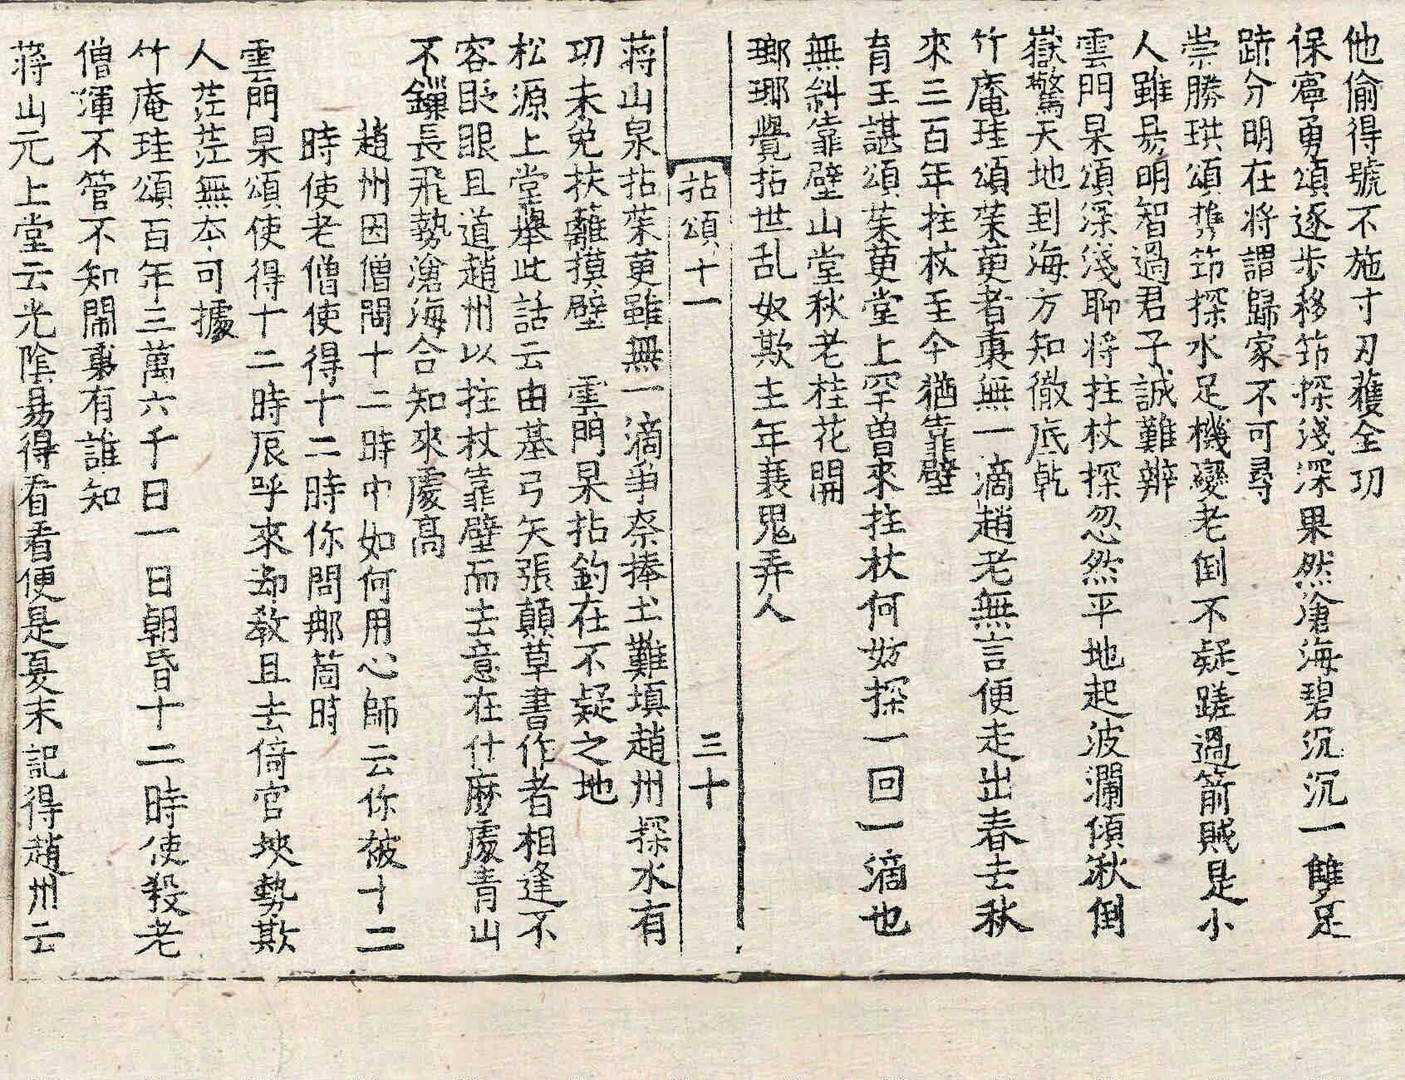 他偷得號不施寸刃獲全功
保寧勇頌逐步移笻探淺深果然滄海碧沉沉一雙足
跡分明在將謂歸家不可尋
崇勝珙頌携笻探水足機變老倒不疑蹉過箭賊是小
人雖易明智過君子誠難辨
雲門杲頌深淺聊將拄杖探忽然平地起波瀾傾湫倒
嶽驚天地到海方知徹底乾
竹庵珪頌茱萸者裏無一滴趙老無言便走出春去秋
來三百年柱杖至今猶靠壁
育王諶頌茱萸堂上罕曾來拄杖何妨探一回一滴也
無斜靠壁山堂秋老桂花開
瑯瑘覺拈世乱奴欺主年衰鬼弄人
拈頌十一 三十
蔣山泉拈茱萸雖無一滴爭奈捧土難填趙州探水有
功未免扶籬摸壁 雲門杲拈釣在不疑之地
松源上堂舉此話云由基弓矢張顛草書作者相逢不
容眨眼且道趙州以拄杖靠壁而去意在什麽處青山
不鏁長飛勢滄海合知來處高
趙州因僧問十二時中如何用心師云你被十二
時使老僧使得十二時你問那箇時
雲門杲頌使得十二時辰呼來却教且去倚官挾勢欺
人茫茫無本可據
竹庵珪頌百年三萬六千日一日朝昏十二時使殺老
僧渾不管不知閙事有誰知
蔣山元上堂云光陰易得看看便是夏末記得趙州云